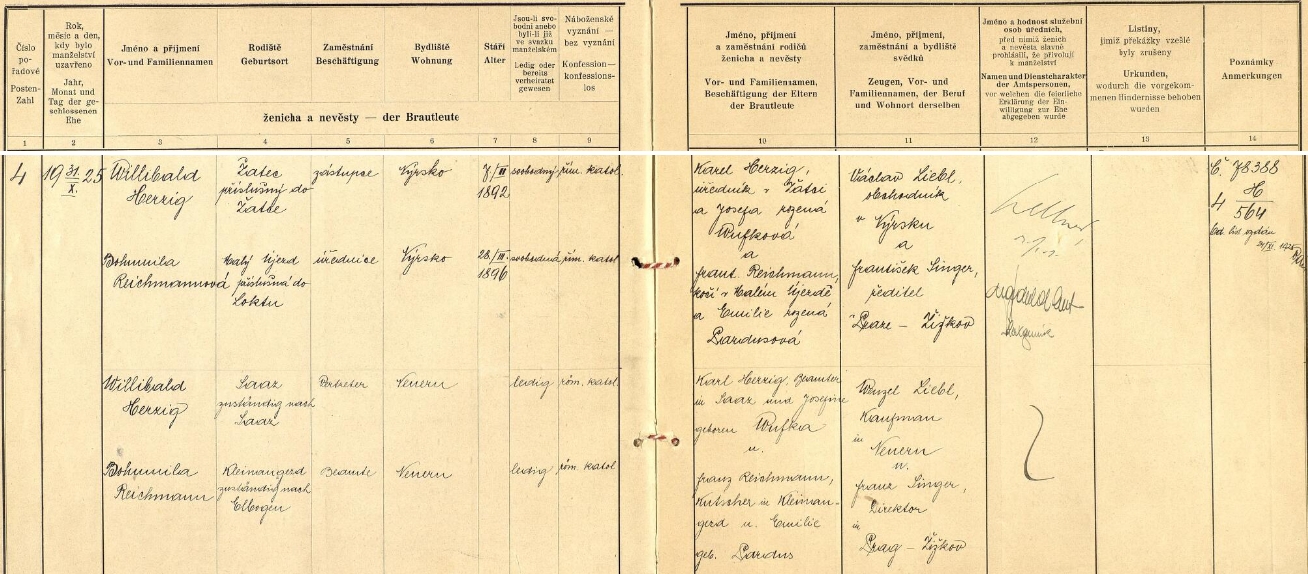 Číslo
po-
řadové
Posten-
Zahl
1
Rok,
měsíc a den,
kdy bylo
manželství
uzavřeno
Jahr,
Monat und
Tag der ge-
schlossenen
Ehe
2
Jméno a příjmení
Vor- und Familiennamen
3
Rodiště
Geburtsort
4
Zaměstnání
Beschäftigung
5
Bydliště
Wohnung
6
Stáří
Alter
7
Jsou-li svo-
bodni anebo
byli-li již
ve svazku
manželském
Ledig oder
bereits
verheiratet
gewesen
8
Náboženské
vyznání —
bez vyznání
Konfession—
konfessions-
los
9
ženicha a nevěsty — der Brautleute
Jméno, příjmení
a zaměstnání rodičů
ženicha a nevěsty
Vor- und Familiennamen,
Beschäftigung der Eltern
der Brautleute
10
Jméno, příjmení,
zaměstnání a bydliště
svědků
Zeugen, Vor- und
Familiennamen, der Beruf
und Wohnort derselben
11
Jméno a hodnost služební
osob úředních,
před nimiž ženich
a nevěsta slavně
prohlásili, že přivolují
k manželství
Namen und Dienstcharakter
der Amtspersonen,
vor welchen die feierliche
Erklärung der Ein-
willigung zur Ehe
abgegeben wurde
12
Listiny,
jimiž překážky vzešlé
byly zrušeny
Urkunden,
wodurch die vorgekom-
menen Hindernisse behoben
wurden
13
Poznámky
Anmerkungen
14
4
19 31/X. 25
Willibald
Herzig
Žatec
příslušný do
Žatce
zástupce
Výrsko
7./II
1892
svobodný
řím. katol.
Bohumila
Reichmannová
Malý Újezd
příslušná do
Loktu
úřednice
Výrsko
28./III.
1896
svobodná
řím. katol.
Willibald
Herzig
Saaz
zuständig nach
Saaz
Vertreter
Neuern
ledig
röm. katol.
Bohumila
Reichmann
Kleinaugezd
zuständig nach
Elbogen
Beamte
Neuern
ledig
röm. katol
Karel Herzig,
úředník v Žatci
a Josefa rozená
Wufková
a
Frant. Reichmann,
kočí v Malém Újezdě
a Emilie rozená
Pardusová
Karl Herzig, Beamter
in Saaz und Josefine
geboren Wufka
u.
Franz Reichmann,
Kutscher in Kleinau-
gezd u. Emilie
geb. Pardus
Václav Liebl,
obchodník
v Výrsku
a
František Singer,
ředitel
Praze — Žižkov
Wenzel Liebl,
Kaufman
in
Neuern
u.
Franz Singer,
Direktor
in
Prag — Žižkov
Č. 78388
4 H/564